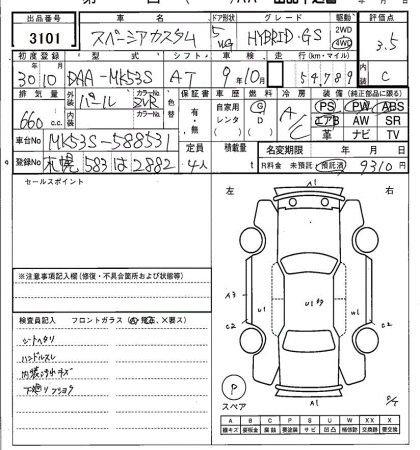 出品番号 車名 ドア形状 グレード 駆動 評価点
3101 スペーシアカスタム 5 HYBRID・GS 2WD 4WD 3.5
初度登録 型式 シフト 車検 走行(km・マイル) 内装
30年10月 DAA-MK53S AT 9年10月 54,789 C
排気量 外装 カラーNo. 色替 保証書 車歴 燃料 冷房 装備(純正部品に限る)
660 c.c. パール ZVR 有・無 自家用 レンタ G D A/C PS PW ABS
内装 カラーNo. エアB AW SR
革 ナビ TV
車台No MK53S-588531 定員 積載量 名変期限 年 月 日
登録No 札幌 583 は 2882 4人 t R料金 未預託 預託済 9310円
セールスポイント
左 右
A1
A3 U1 U1 U1
C2 C2
※注意事項記入欄(修復・不具合箇所および状態等)
検査員記入 フロントガラス(A 飛石、×要ス)
シートヘタリ
ハンドルスレ
内装汚れキズ
下廻りフショク
P
スペア
A1
A B C P S U W XX X
線キズ 要板金 腐蝕 要塗装 サビ 凹凸 補修跡 交換済 要交換